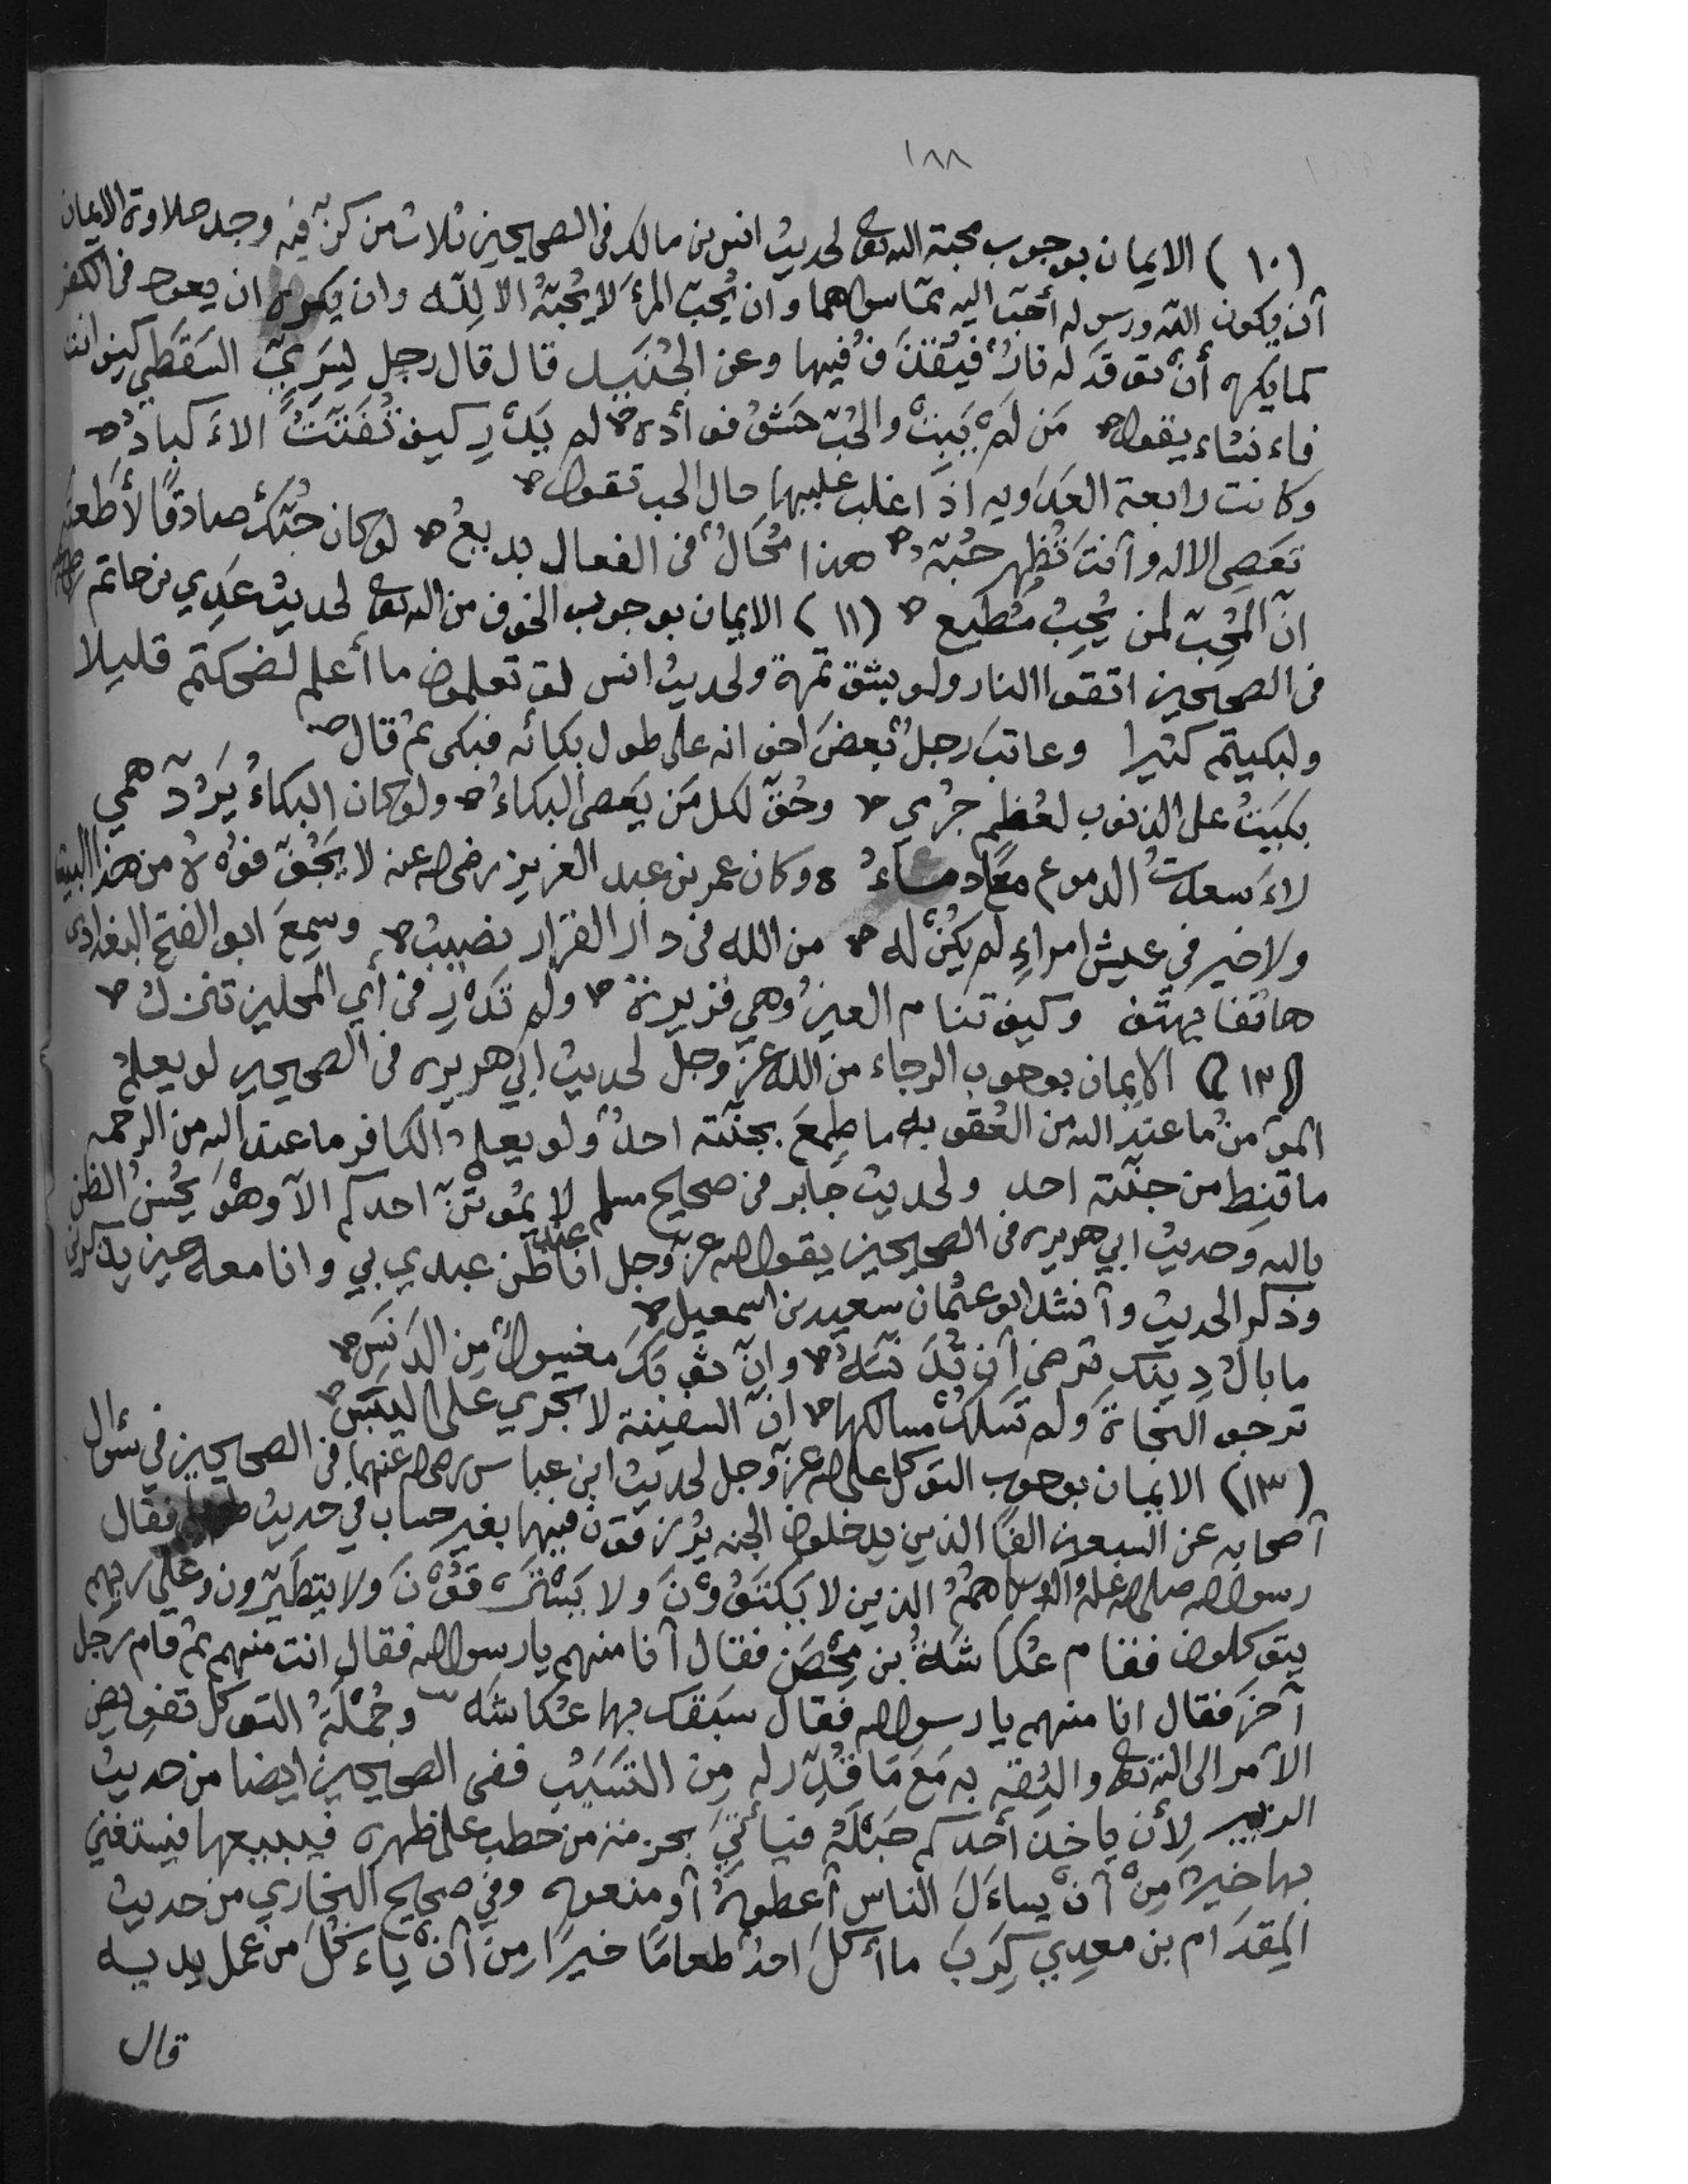 ١٨٨
(١٠) الايمان بوجوب محبة الله تع لحديث انس بن مالك فى الصحيحين ثلاث من كن فيه وجد حلاوة الايمان
أن يكون الله ورسوله أحب اليه مما سواهما وان يُحبّ المرءَ لا يُحبّهُ الا لِلّه وان يكره ان يعود فى الكفر
كما يكره أنْ توقد له نارٌ فيُقذَفُ فيها وعن الجُنَيد قال قال رجل لِسَريّ السَقَطِي كيف انت
فاءنشاء يقول من لَمْ يَبِتْ والحُبّ حَشْوُ فوأده لم يَدْرِ كيف تُفَتَّتُ الاءَكبادُ
وكانت رابعة العَدَويه اذا غلب عليها حال الحب تقول
تَعَصِى الاله وأنتَ تُظْهِر حُبّهُ هذا مُحَالٌ فى الفعال بديعُ لو كان حُبّكَ صادقًا لأَطَعتَه
انّ المُحِبّ لمن يُحِبُ مُطيع (١١) الايمان بوجوب الخوف من الله تع لحديث عَدِي بن حاتم
فى الصحيحين اتقوا النار ولو بشق تمرة ولحديث انس لو تعلمون ما أعلم لضحكتم قليلا
ولبكيتم كثيرا وعاتبَ رجلٌ بعضَ اخوانه على طول بكائه فبكى ثم قال
بَكَيتُ على الذنوب لعُظمِ جرُمي وحُقّ لكل مَن يَعصى البكاءُ ولو كان البكاءُ يَرُدّ همي
لاءَسعدت الدموع معًا دماءُ وكان عمر بن عبد العزيز رضى الله عنه لا يَجُفّ فوُه من هذا البيت
ولا خير في عيش امراءٍ لم يكنْ له من الله فى دار القرار نصيبُ وسمِعَ ابو الفتح البغدادى
هاتفا يهتف وكيف تنام العينُ وهي قريرة ولم تَدْرِ فى أي المحلين تنزل
(١٢) الايمان بوجوب الرجاء من الله عزّ وجلّ لحديث ابي هريره فى الصحيحين لو يعلم
المؤمن ما عند الله من العُقوبه ما طَمِعَ بجنّته احدٌ ولو يعلم الكافر ما عند الله من الرحمه
ما قنِط من جنّته احد ولحديث جابر فى صحيح مسلم لا يموتنّ احدكم الاّ وهُوَ يُحْسِنُ الظن
بالله وحديث ابي هريره فى الصحيحين يقول الله عزّ وجل انا عند ظن عبدي بي وانا معه حين يذكرنى
وذكر الحديث وأنشد ابو عثمان سعيد بن اسمعيل
ما بالُ دِينك ترضى أن تُدَنّسَهُ وانّ ثوبكَ مغسولٌ مِن الدَنَسِ
ترجو النجاةَ ولم تَسلكْ مسالكها انّ السفينة لا تجري على اليَبَسِ
(١٣) الايمان بوجوب التوكل على الله عزّ وجل لحديث ابن عباس رضى الله عنهما فى الصحيحين في سئوال
أصحابه عن السبعين الفًا الذين يدخلون الجنه يُرزقون فيها بغير حساب في حديث طويل فقال
رسول الله صلى الله عليه واله وسلم همُ الذين لا يَكتَوُونَ ولا يَسْتَرقُوْنَ ولا يتطيّرون وعلى ربهم
يتوكلون فقام عُكاشَةُ بن مِحْصَن فقال أنا منهم يا رسول الله فقال انت منهم ثم قام رجل
آخرَ فقال انا منهم يا رسول الله فقال سبقك بها عُكاشَه وجُمْلَةُ التوكل تفويض
الأمر الى الله تع والثِقه به مَعَ مَا قُدِّرَ له مِن التَسَبّب ففى الصحيحين ايضا من حديث
الزبير لأن ياخذ أحدكم حَبْلَهُ فيأتيَ بحزمة من حطب على ظهره فيبيعها فيستغني
بها خيرٌ مِنْ أنْ يساءَلَ الناس أعطوهُ أو منعوه وفي صحيح البخاري من حديث
المِقدَام بن معدِي كَرِبَ ما أكَلَ احدٌ طعامًا خيرًا مِنْ أنْ ياءكُلَ من عمل يديه
قال